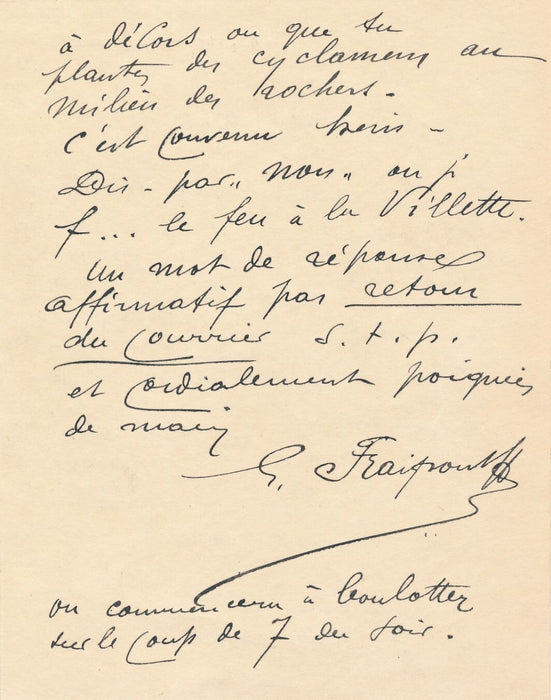 à décors ou que tu
plantes des cyclamens au
milieu des rochers.
C'est convenu hein -
Dis - pas „ non „ ou j'
f... le feu à la Villette.
Un mot de réponse
affirmatif par retour
du courrier s. t. p.
et cordialement poignées
de main
G. Fraipont
on commencera à boulotter
sur le coup de 7 du soir.